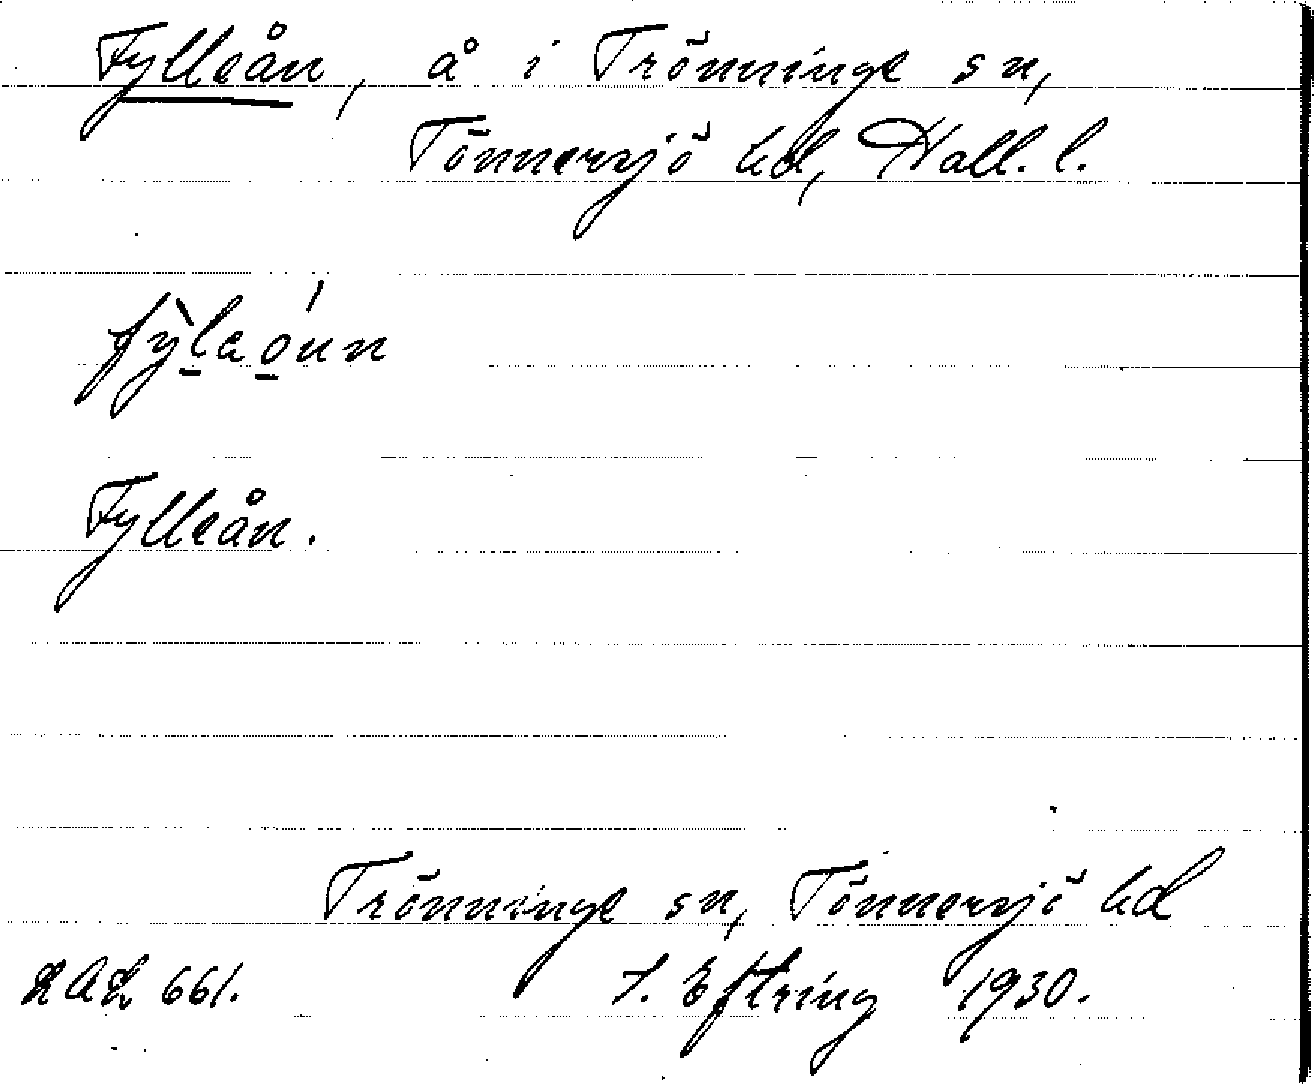 Fylleån, å i Trönninge sn,
Tönnersjö hd, Hall. l.
fỳlaónn
Fylleån.
Trönninge sn, Tönnersjö hd
LAL 661. J. Eftring 1930.